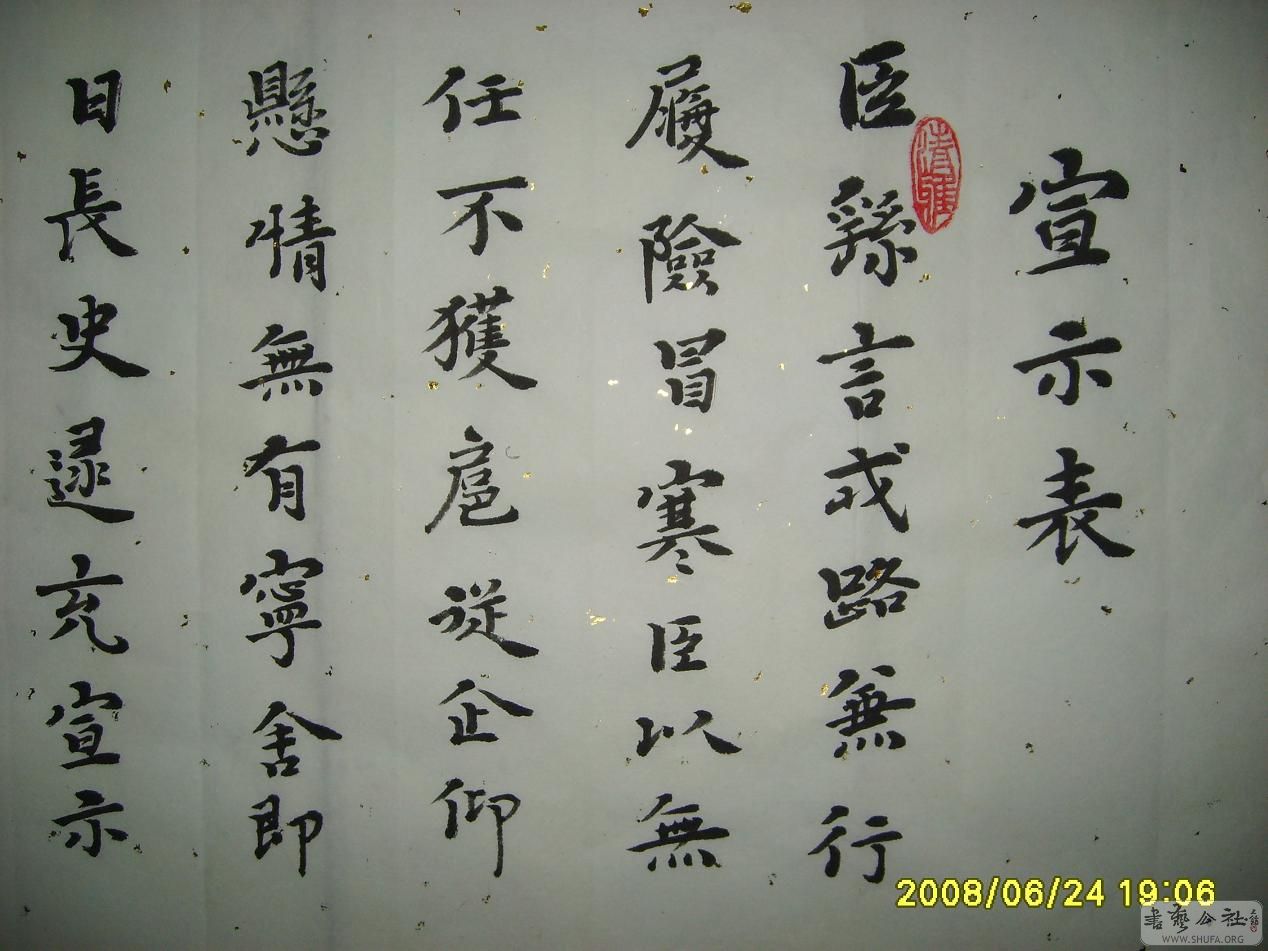 宣示表
臣繇言戎路兼行
履險冒寒臣以無
任不獲扈從企仰
懸情無有寧舍即
日長史逯充宣示
清雅
2008/06/24 19:06
書藝公社
WWW.SHUFA.ORG